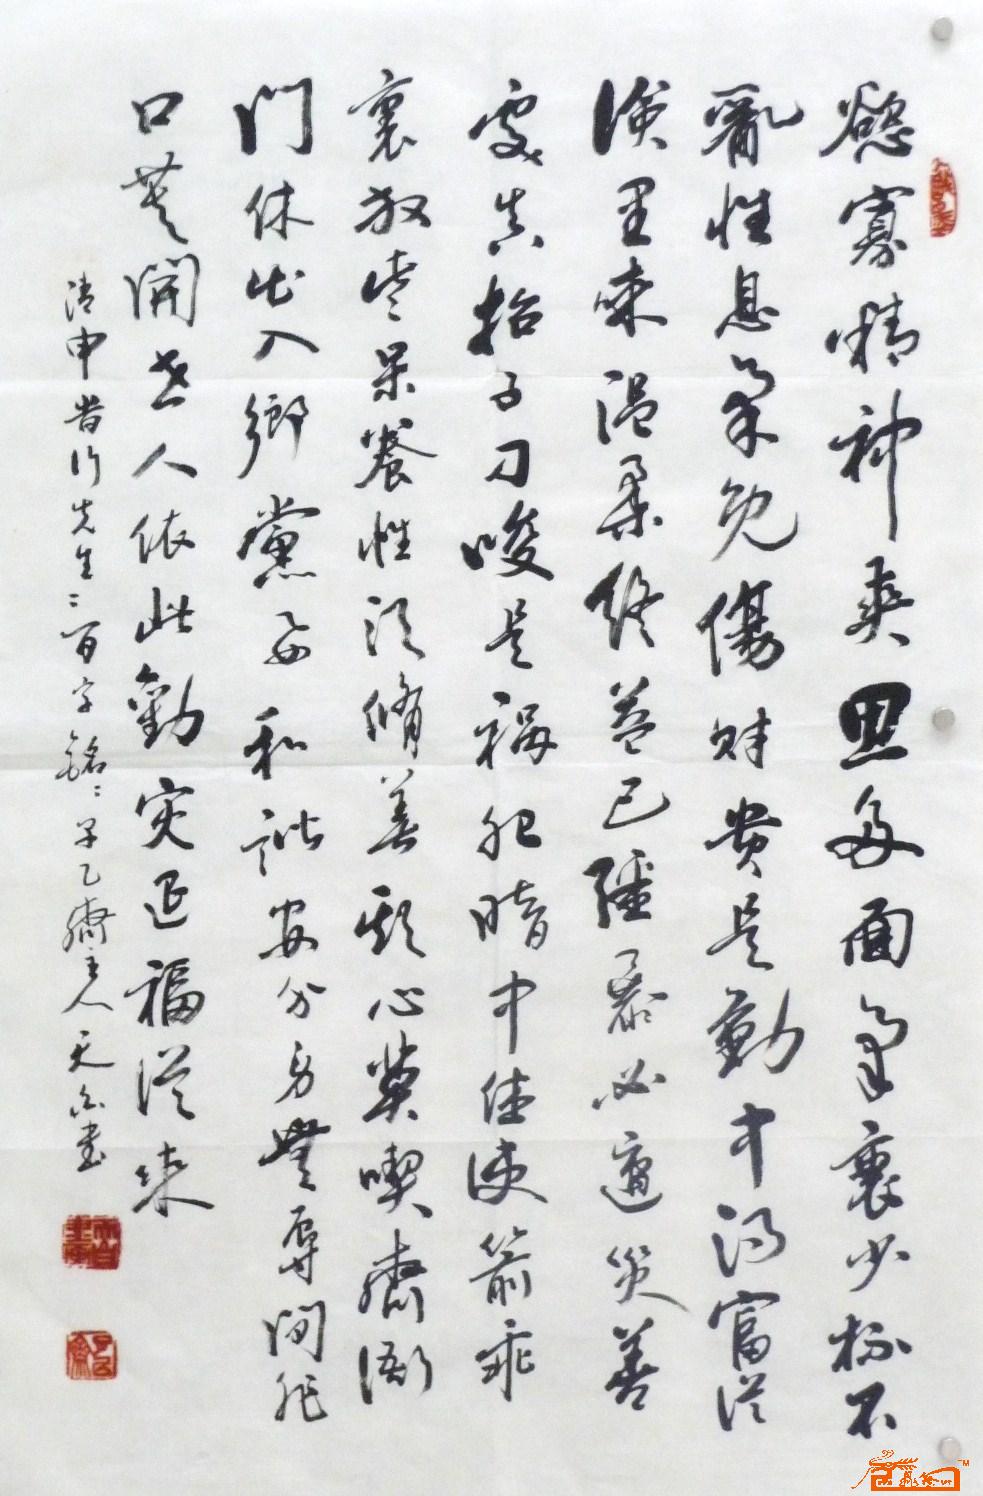 慾寡精神爽思多面氣衰少杯不
亂性息氣免傷財貴是勤中得富從
儉里來温柔終益己強暴必遭災善
處真招子刁唆是禍胎暗中住使箭乖
裏放些呆養性須脩善欺心莫喫齋衙
門休出入鄉黨要和諧安分身無辱閒非
口莫開世人依此勸灾退福從來
清申昔行先生百字銘子乙齋主人天書